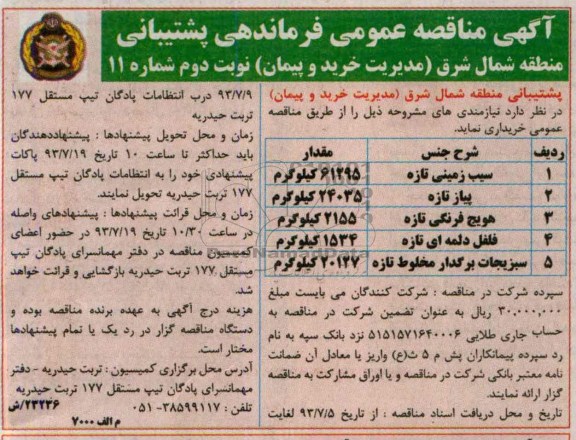 آگهی مناقصه عمومی فرماندهی پشتیبانی
منطقه شمال شرق (مدیریت خرید و پیمان) نوبت دوم شماره ۱۱
پشتیبانی منطقه شمال شرق (مدیریت خرید و پیمان)
در نظر دارد نیازمندی های مشروحه ذیل را از طریق مناقصه
عمومی خریداری نماید.
ردیف شرح جنس مقدار
۱ سیب زمینی تازه ۶۱۲۹۵ کیلوگرم
۲ پیاز تازه ۲۴۰۳۵ کیلوگرم
۳ هویج فرنگی تازه ۲۱۵۵ کیلوگرم
۴ فلفل دلمه ای تازه ۱۵۳۴ کیلوگرم
۵ سبزیجات برگدار مخلوط تازه ۲۰۱۲۷ کیلوگرم
سپرده شرکت در مناقصه : شرکت کنندگان می بایست مبلغ
۳۰,۰۰۰,۰۰۰ ریال به عنوان تضمین شرکت در مناقصه به
حساب جاری طلایی ۵۱۵۱۵۷۱۶۴۰۰۰۶ نزد بانک سپه به نام
رد سپرده پیمانکاران پش م ۵ ث(ع) واریز یا معادل آن ضمانت
نامه معتبر بانکی شرکت در مناقصه و یا اوراق مشارکت به مناقصه
گزار ارائه نمایند.
تاریخ و محل دریافت اسناد مناقصه : از تاریخ ۹۳/۷/۵ لغایت
۹۳/۷/۹ درب انتظامات پادگان تیپ مستقل ۱۷۷
تربت حیدریه
زمان و محل تحویل پیشنهادها : پیشنهاددهندگان
باید حداکثر تا ساعت ۱۰ تاریخ ۹۳/۷/۱۹ پاکات
پیشنهادی خود را به انتظامات پادگان تیپ مستقل
۱۷۷ تربت حیدریه تحویل نمایند.
زمان و محل قرائت پیشنهادها : پیشنهادهای واصله
در ساعت ۱۰/۳۰ تاریخ ۹۳/۷/۱۹ در حضور اعضای
کمیسیون مناقصه در دفتر مهمانسرای پادگان تیپ
مستقل ۱۷۷ تربت حیدریه بازگشایی و قرائت خواهد
شد.
هزینه درج آگهی به عهده برنده مناقصه بوده و
دستگاه مناقصه گزار در رد یک یا تمام پیشنهادها
مختار است.
آدرس محل برگزاری کمیسیون : تربت حیدریه - دفتر
مهمانسرای پادگان تیپ مستقل ۱۷۷ تربت حیدریه
تلفن : ۳۸۵۹۹۱۱۷-۰۵۱
۲۳۲۳۶/ش
م الف ۷۰۰۰